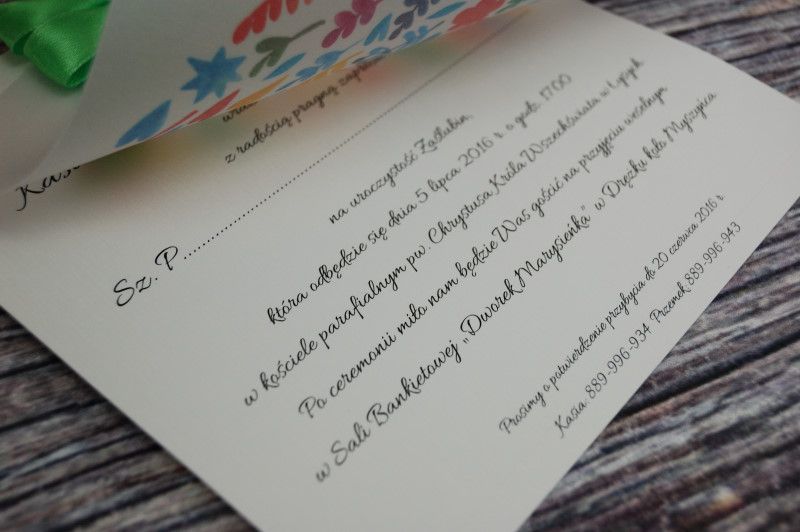 Kasi
wraz
z radością pragną zaprosić
Sz. P.
na uroczystość Zaślubin,
która odbędzie się dnia 5 lipca 2016 r. o godz. 17.00
w kościele parafialnym pw. Chrystusa Króla Wszechświata w Łyżycyk
Po ceremonii miło nam będzie Was gościć na przyjęciu weselnym
w Sali Bankietowej „Dworek Marysieńka" w Drężku koło Myszyńca
Prosimy o potwierdzenie przybycia do 20 czerwca 2016 r.
Kasia: 889-996-934 Przemek: 889-996-943